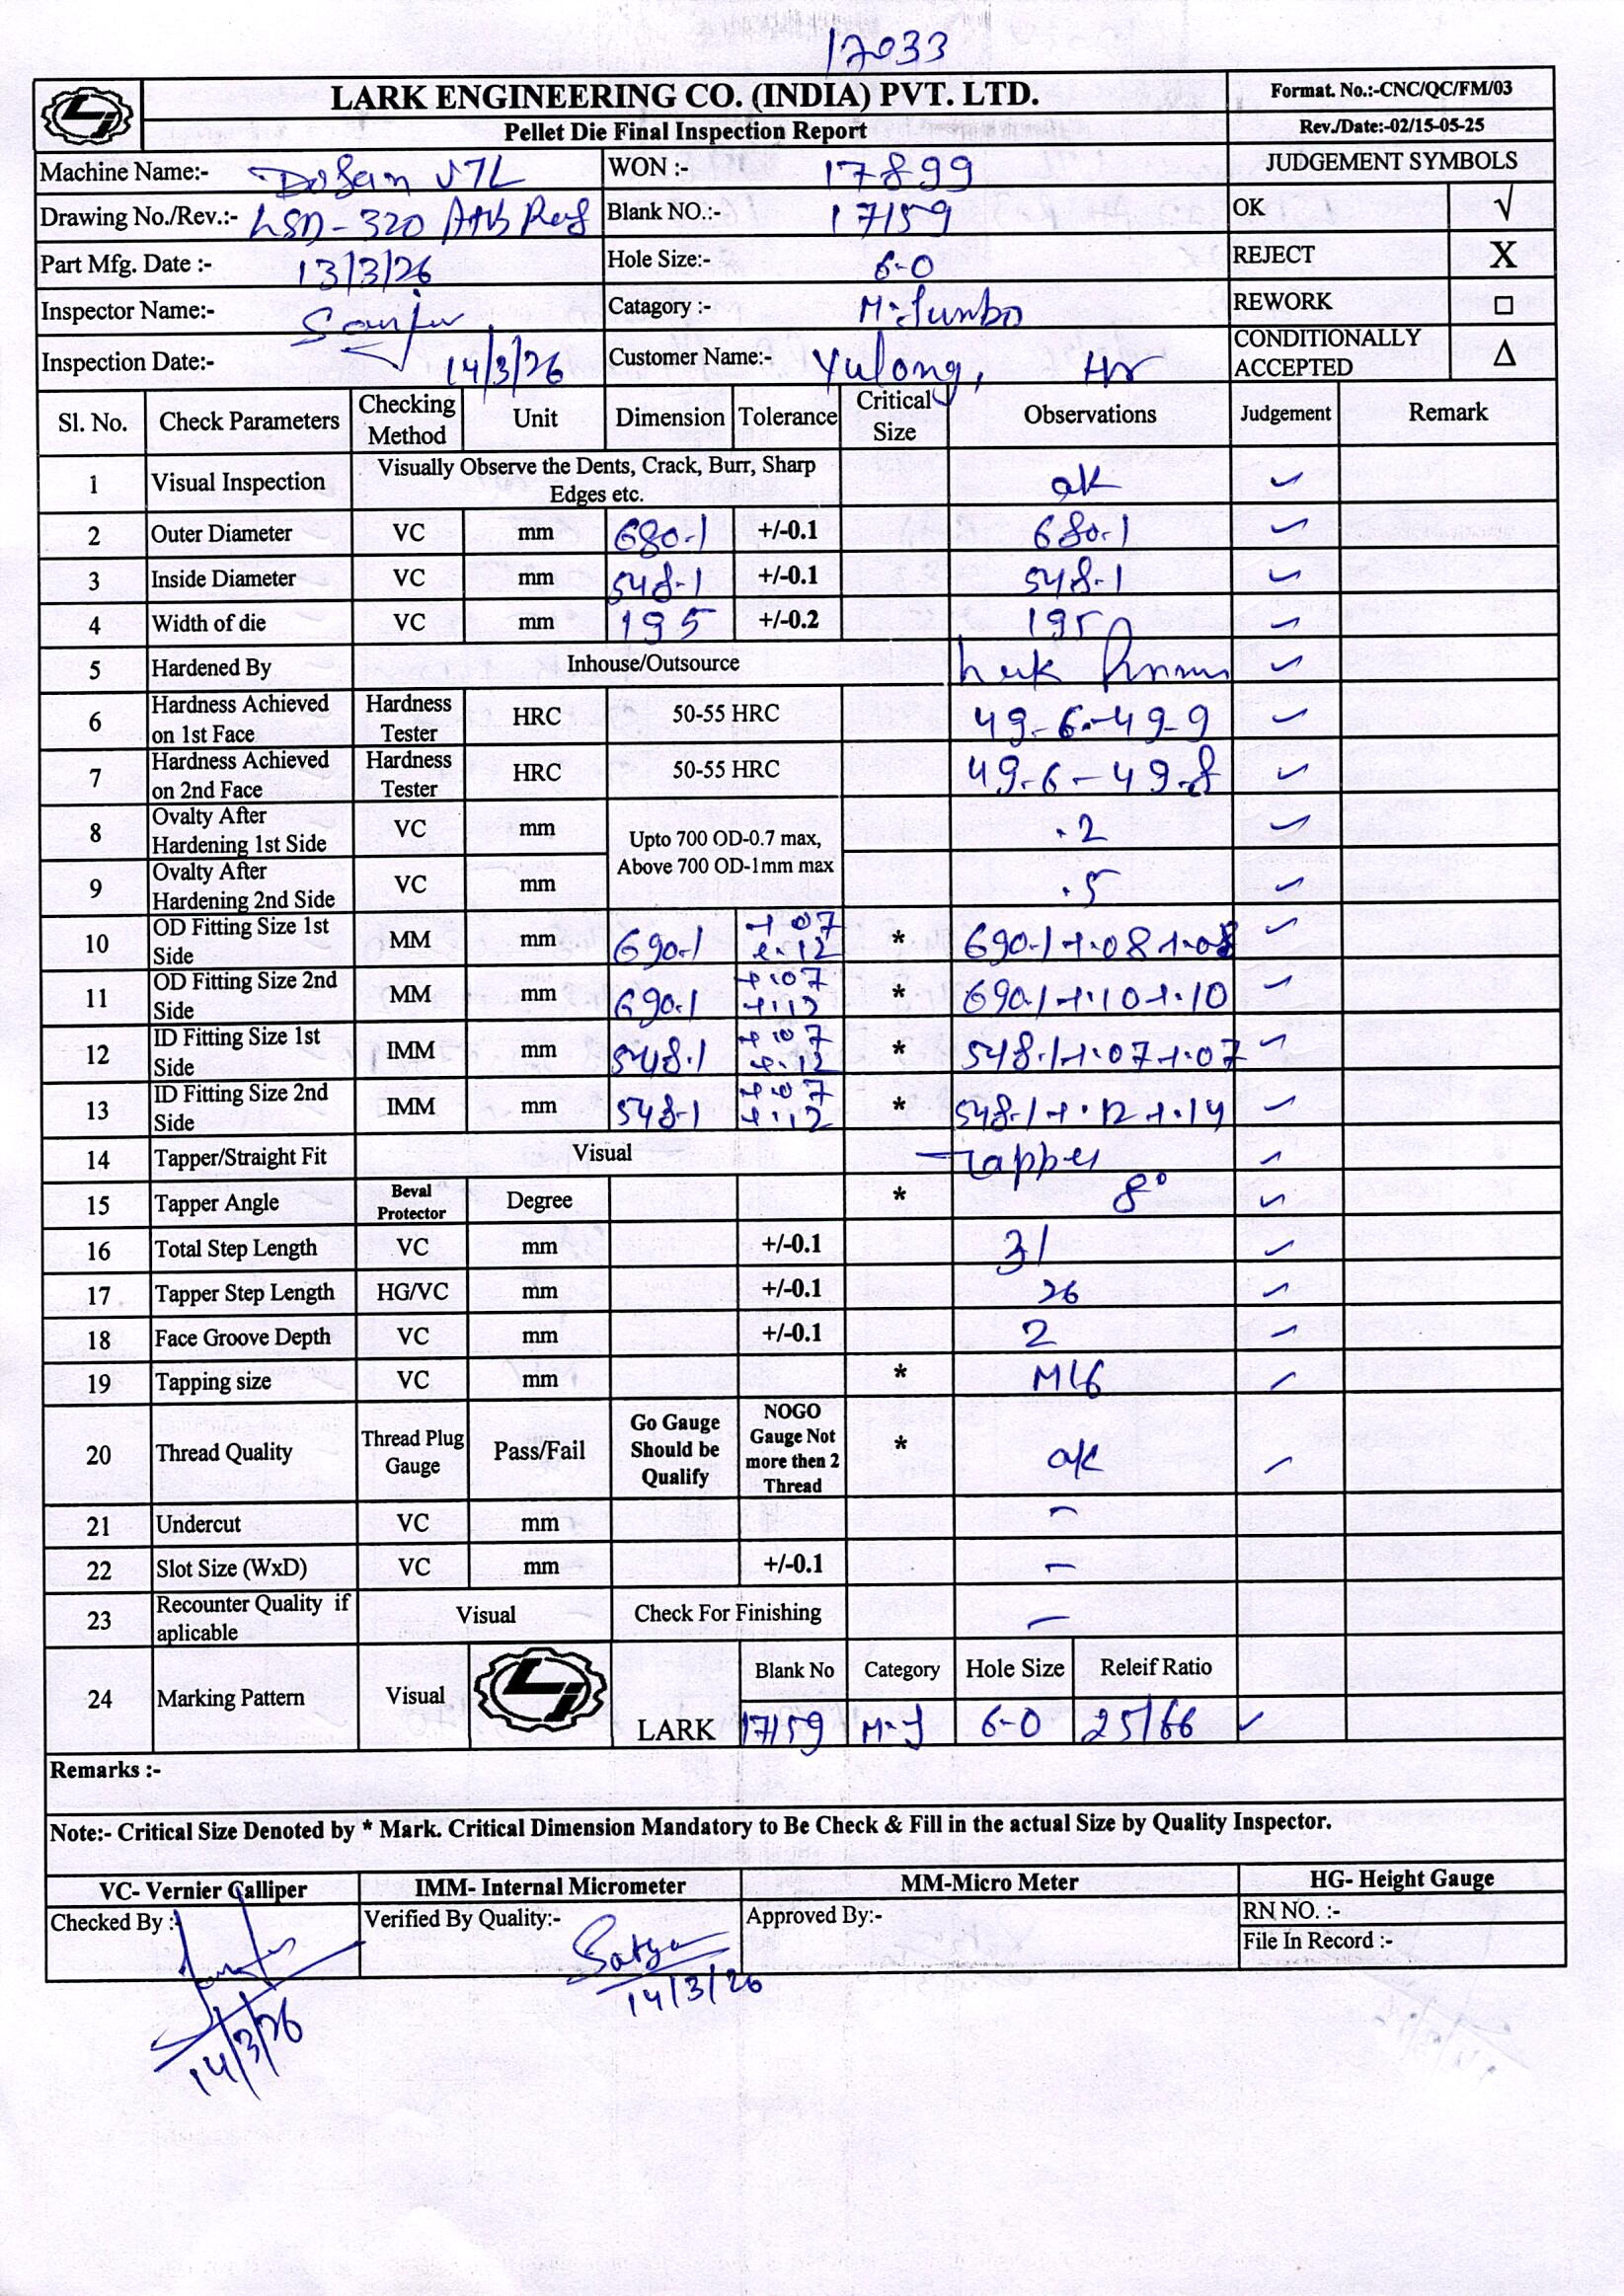 17033
LARK ENGINEERING CO. (INDIA) PVT. LTD.
Format. No.:-CNC/QC/FM/03
Pellet Die Final Inspection Report
Rev./Date:-02/15-05-25
Machine Name:- VTL WON :- 17899 JUDGEMENT SYMBOLS
Drawing No./Rev.:- LSD-320 Blank NO.:- 17159 OK √
Part Mfg. Date :- 13/3/26 Hole Size:- 6-0 REJECT X
Inspector Name:- Catagory :- M-Jumbo REWORK □
Inspection Date:- 14/3/26 Customer Name:- Yulong, CONDITIONALLY ACCEPTED Δ
Sl. No. Check Parameters Checking Method Unit Dimension Tolerance Critical Size Observations Judgement Remark
1 Visual Inspection Visually Observe the Dents, Crack, Burr, Sharp Edges etc. ok ✓
2 Outer Diameter VC mm 680-1 +/-0.1 680-1 ✓
3 Inside Diameter VC mm 548-1 +/-0.1 548-1 ✓
4 Width of die VC mm 195 +/-0.2 195 ✓
5 Hardened By Inhouse/Outsource ✓
6 Hardness Achieved on 1st Face Hardness Tester HRC 50-55 HRC 49-6-49-9 ✓
7 Hardness Achieved on 2nd Face Hardness Tester HRC 50-55 HRC 49-6-49-8 ✓
8 Ovalty After Hardening 1st Side VC mm Upto 700 OD-0.7 max, Above 700 OD-1mm max .2 ✓
9 Ovalty After Hardening 2nd Side VC mm .5 ✓
10 OD Fitting Size 1st Side MM mm 690-1 +.07 +.12 * 690-1+.08+.08 ✓
11 OD Fitting Size 2nd Side MM mm 690-1 +.07 +.12 * 690-1+.10+.10 ✓
12 ID Fitting Size 1st Side IMM mm 548-1 +.07 +.12 * 548-1+.07+.07 ✓
13 ID Fitting Size 2nd Side IMM mm 548-1 +.07 +.12 * 548-1+.12+.14 ✓
14 Tapper/Straight Fit Visual Tapper ✓
15 Tapper Angle Beval Protector Degree * 8° ✓
16 Total Step Length VC mm +/-0.1 31 ✓
17 Tapper Step Length HG/VC mm +/-0.1 26 ✓
18 Face Groove Depth VC mm +/-0.1 2 ✓
19 Tapping size VC mm * M16 ✓
20 Thread Quality Thread Plug Gauge Pass/Fail Go Gauge Should be Qualify NOGO Gauge Not more then 2 Thread * ok ✓
21 Undercut VC mm -
22 Slot Size (WxD) VC mm +/-0.1 -
23 Recounter Quality if aplicable Visual Check For Finishing -
24 Marking Pattern Visual LARK Blank No Category Hole Size Releif Ratio
17159 M-J 6-0 25/66 ✓
Remarks :-
Note:- Critical Size Denoted by * Mark. Critical Dimension Mandatory to Be Check & Fill in the actual Size by Quality Inspector.
VC- Vernier Calliper IMM- Internal Micrometer MM-Micro Meter HG- Height Gauge
Checked By :- Verified By Quality:- Satya Approved By:- RN NO. :-
File In Record :-
14/3/26
14/3/26